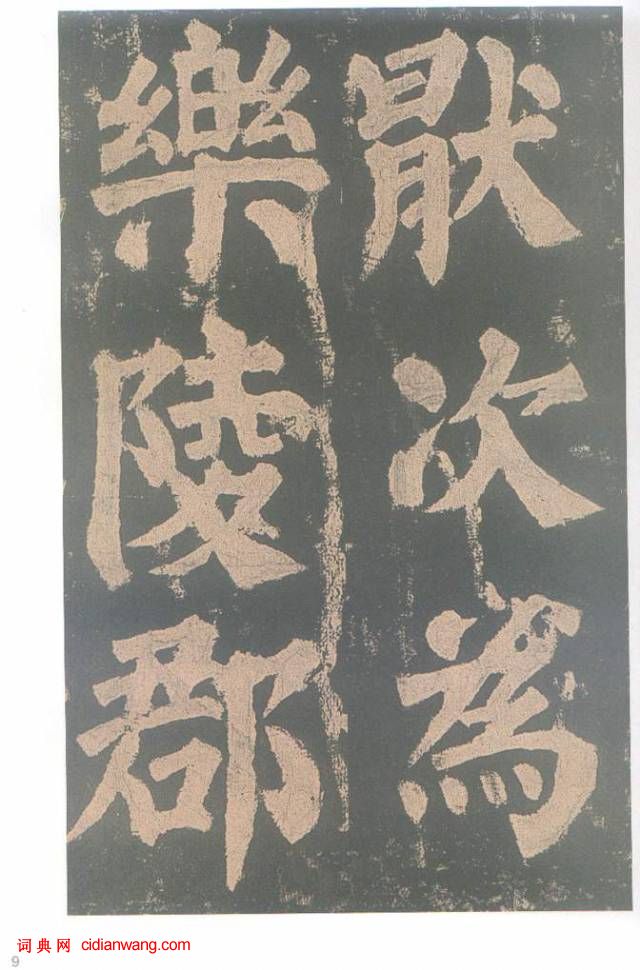 猒次為
樂陵郡
词典网 cidianwang.com
9